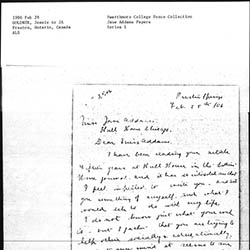 1906 Feb 28
GOLDNER, Jennie to JA
Preston, Ontario, Canada
ALS
Swarthmore College Peace Collection
Jane Addams Papers
Series 1
Preston Springs
Feb. 28th /06
Miss Jane Addams.
Hull House Chicago.
Dear Miss Addams.
I have been reading your article
"years at Hull House in the Ladies'
Home Journal, and it has so interested me that
I feel impelled to write you, and tell
you something of myself, and what I
would like to do with my life.
I do not know just what your work
is, but I gather that you are trying to
help others socially & educationally,